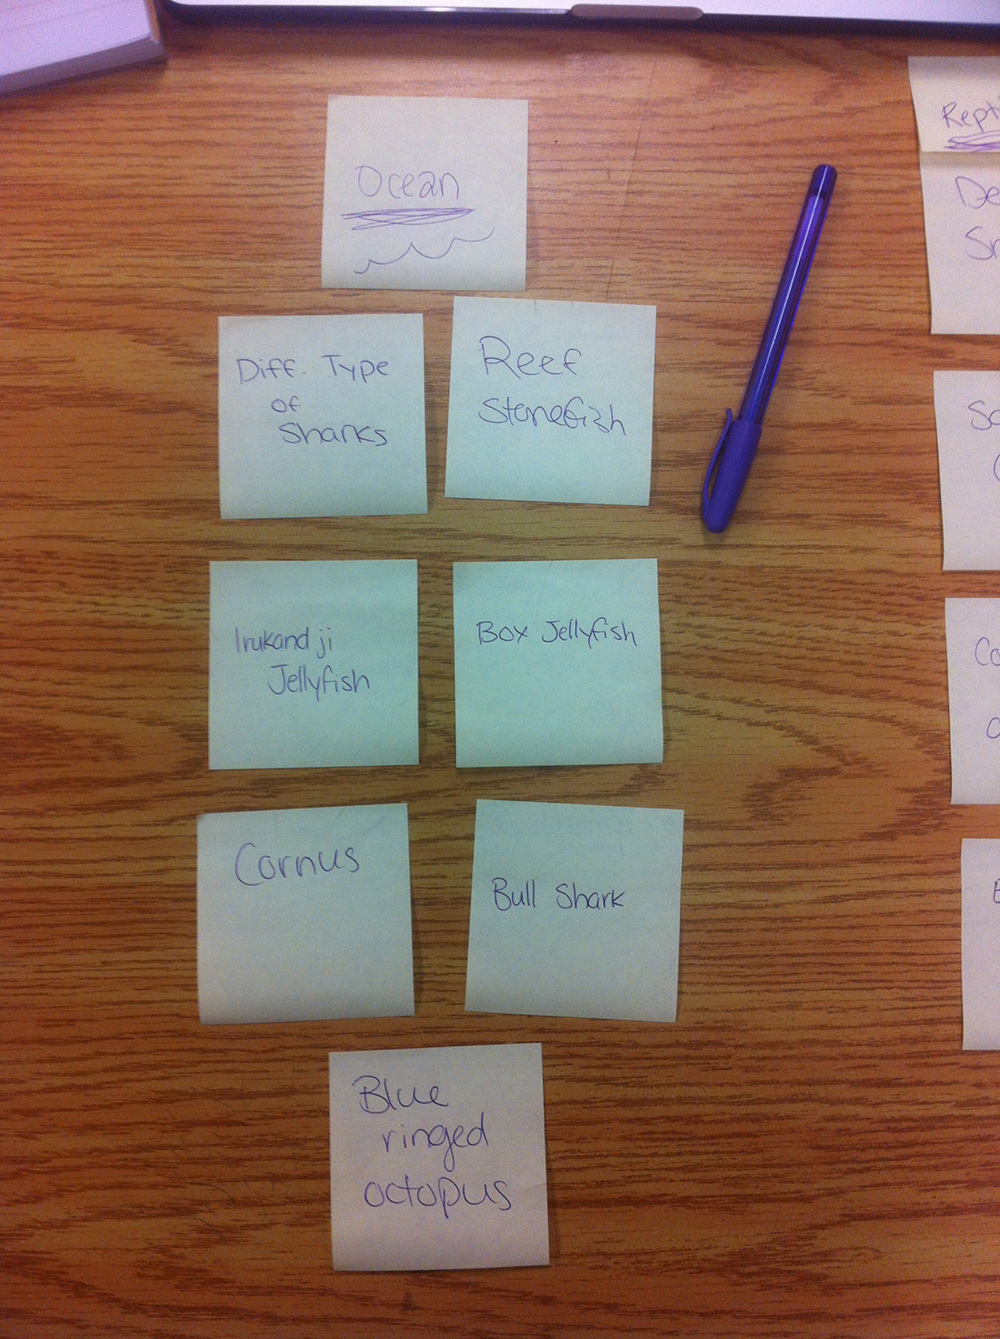 Ocean
Diff. Type
of
Sharks
Reef
Stonefish
Irukandji
Jellyfish
Box Jellyfish
Cornus
Bull Shark
Blue
ringed
octopus
Rept
De